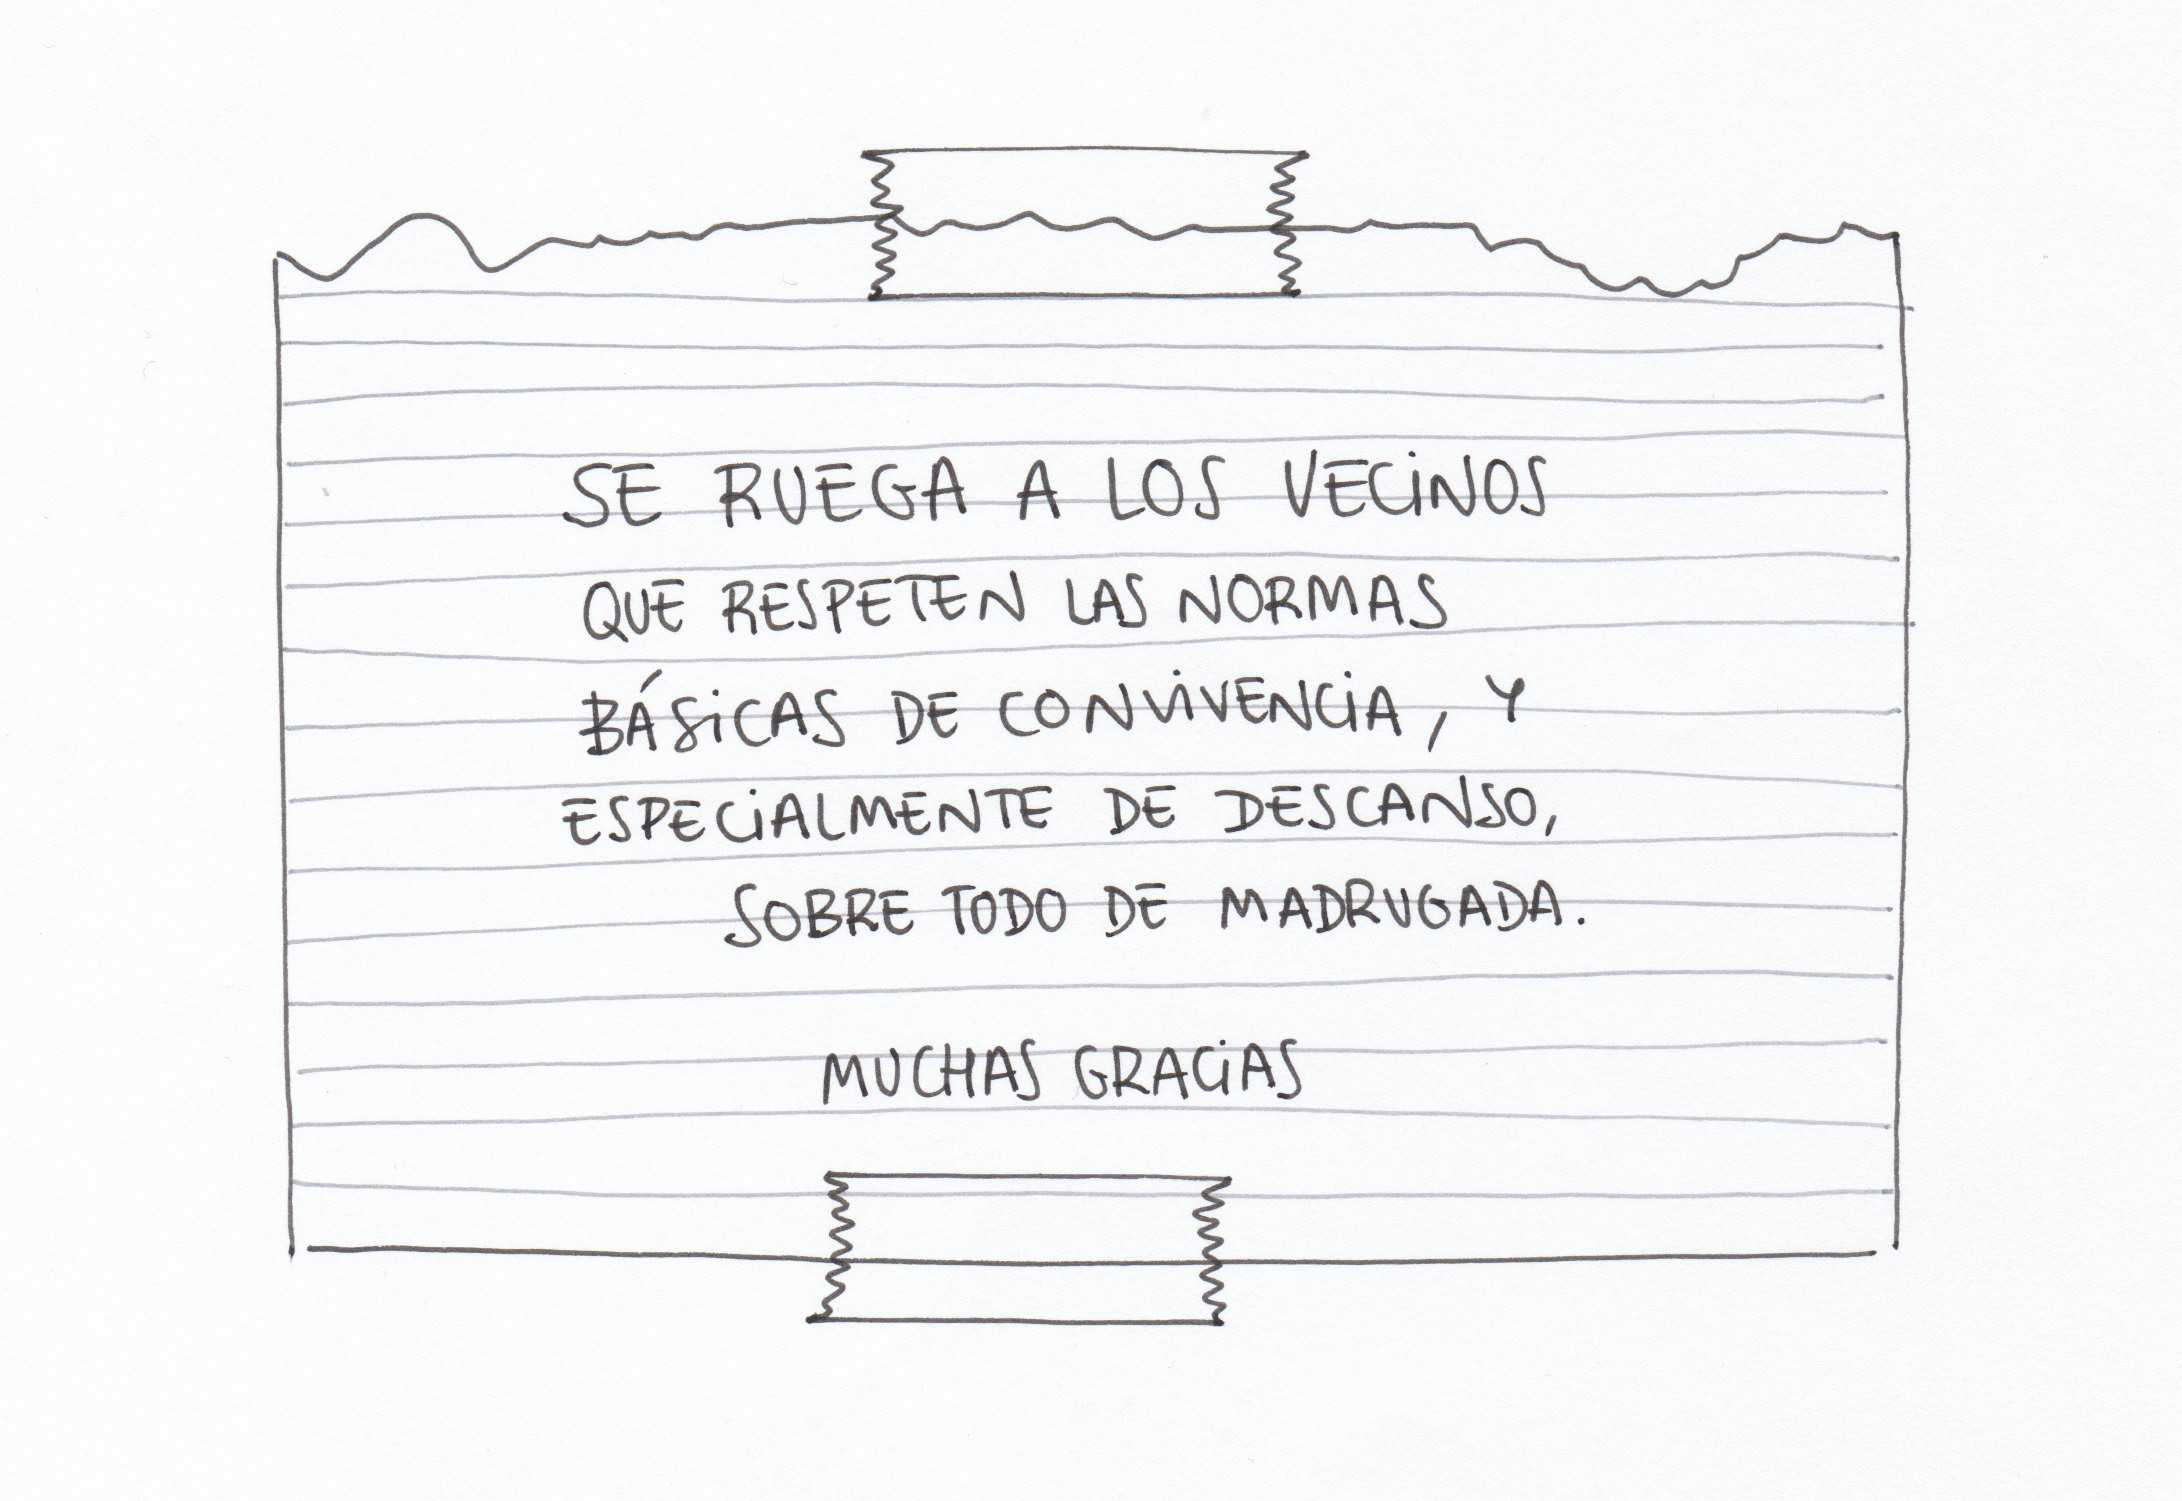 SE RUEGA A LOS VECINOS
QUE RESPETEN LAS NORMAS
BÁSICAS DE CONVIVENCIA, Y
ESPECIALMENTE DE DESCANSO,
SOBRE TODO DE MADRUGADA.
MUCHAS GRACIAS